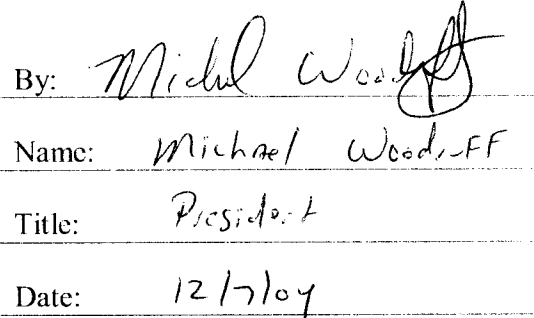 By: Michael Woodruff
Name: Michael Woodruff
Title: President
Date: 12/7/04